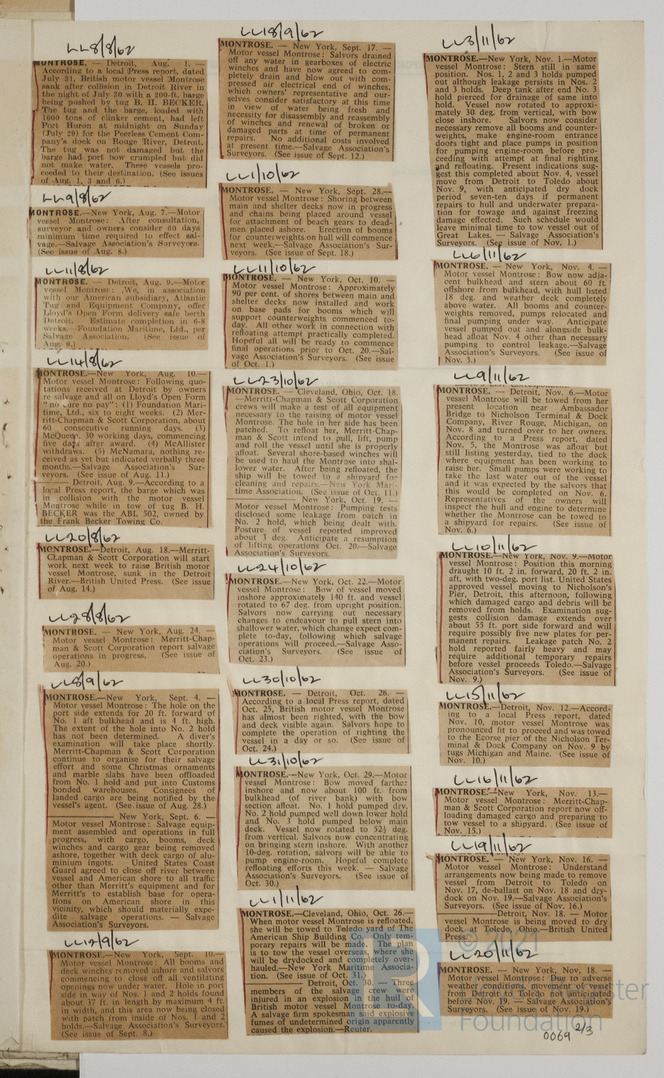 LL8/8/62
MONTROSE. — Detroit, Aug. 1. —
According to a local Press report, dated
July 31, British motor vessel Montrose
sank after collision in Detroit River in
the night of July 30 with a 200-ft. barge
being pushed by tug B. H. BECKER.
The tug and the barge, loaded with
1600 tons of clinker cement, had left
Port Huron at midnight on Sunday
(July 29) for the Peerless Cement Com-
pany's dock on Rouge River, Detroit.
The tug was not damaged but the
barge had port bow crumpled but did
not make water. These vessels pro-
ceeded to their destination. (See issues
of Aug. 1, 3 and 6.)
LL9/8/62
MONTROSE.—New York, Aug. 7.—Motor
vessel Montrose: After consultation,
surveyor and owners consider 60 days
minimum time required to effect sal-
vage.—Salvage Association's Surveyors.
(See issue of Aug. 8.)
LL11/8/62
MONTROSE. — Detroit, Aug. 9.—Motor
vessel Montrose: We, in association
with our American subsidiary, Atlantic
Tug and Equipment Company, offer
Lloyd's Open Form delivery safe berth
Detroit. Estimate completion in 6-8
weeks.—Foundation Maritime, Ltd., per
Salvage Association. (See issue of
Aug. 9.)
LL14/8/62
MONTROSE. — New York, Aug. 10.—
Motor vessel Montrose: Following quo-
tations received at Detroit by owners
re salvage and all on Lloyd's Open Form
"no cure no pay": (1) Foundation Mari-
time, Ltd., six to eight weeks. (2) Mer-
ritt-Chapman & Scott Corporation, about
60 consecutive running days. (3)
McQueen, 30 working days, commencing
five days after award. (4) McAllister
withdraws. (5) McNamara, nothing re-
ceived as yet but indicated verbally three
months.—Salvage Association's Sur-
veyors. (See issue of Aug. 11.)
— Detroit, Aug. 9.—According to a
local Press report, the barge which was
in collision with the motor vessel
Montrose while in tow of tug B. H.
BECKER was the ABL 502, owned by
the Frank Becker Towing Co.
LL20/8/62
MONTROSE.—Detroit, Aug. 18.—Merritt-
Chapman & Scott Corporation will start
work next week to raise British motor
vessel Montrose, sunk in the Detroit
River.—British United Press. (See issue
of Aug. 14.)
LL28/8/62
MONTROSE. — New York, Aug. 24. —
Motor vessel Montrose: Merritt-Chap-
man & Scott Corporation report salvage
operations in progress. (See issue of
Aug. 20.)
LL8/9/62
MONTROSE.—New York, Sept. 4. —
Motor vessel Montrose: The hole on the
port side extends for 20 ft. forward of
No. 1 aft bulkhead and is 4 ft. high.
The extent of the hole into No. 2 hold
has not been determined. A diver's
examination will take place shortly.
Merritt-Chapman & Scott Corporation
continue to organise for their salvage
effort and some Christmas ornaments
and marble slabs have been offloaded
from No. 1 hold and put into Customs
bonded warehouses. Consignees of
landed cargo are being notified by the
vessel's agent. (See issue of Aug. 28.)
— New York, Sept. 6. —
Motor vessel Montrose: Salvage equip-
ment assembled and operations in full
progress, with cargo, booms, deck
winches and cargo gear being removed
ashore, together with deck cargo of alu-
minium ingots. United States Coast
Guard agreed to close off river between
vessel and American shore to all traffic
other than Merritt's equipment and for
Merritt's to establish base for opera-
tions on American shore in this
vicinity, which should materially expe-
dite salvage operations. — Salvage
Association's Surveyors.
LL12/9/62
MONTROSE. — New York, Sept. 10.—
Motor vessel Montrose: All booms and
deck winches removed ashore and salvors
commencing to close off all ventilating
openings now under water. Hole in port
side in way of Nos. 1 and 2 holds found
about 37 ft. in length by maximum 4 ft.
in width, and this area now being closed
with patch from inside of Nos. 1 and 2
holds.—Salvage Association's Surveyors.
(See issue of Sept. 8.)
LL18/9/62
MONTROSE. — New York, Sept. 17. —
Motor vessel Montrose: Salvors drained
off any water in gearboxes of electric
winches and have now agreed to com-
pletely drain and blow out with com-
pressed air electrical end of winches,
which owners' representative and our-
selves consider satisfactory at this time
in view of water being fresh and
necessity for disassembly and reassembly
of winches and renewal of broken or
damaged parts at time of permanent
repairs. No additional costs involved
at present time.—Salvage Association's
Surveyors. (See issue of Sept. 12.)
LL1/10/62
MONTROSE. — New York, Sept. 28.—
Motor vessel Montrose: Shoring between
main and shelter decks now in progress
and chains being placed around vessel
for attachment of beach gears to dead-
men placed ashore. Erection of booms
for counterweights on hull will commence
next week.—Salvage Association's Sur-
veyors. (See issue of Sept. 18.)
LL11/10/62
MONTROSE. — New York, Oct. 10. —
Motor vessel Montrose: Approximately
90 per cent. of shores between main and
shelter decks now installed and work
on base pads for booms which will
support counterweights commenced to-
day. All other work in connection with
refloating attempt practically completed.
Hopeful all will be ready to commence
final operations prior to Oct. 20.—Sal-
vage Association's Surveyors. (See issue
of Oct. 1.)
LL23/10/62
MONTROSE. — Cleveland, Ohio, Oct. 18.
—Merritt-Chapman & Scott Corporation
crews will make a test of all equipment
necessary to the raising of motor vessel
Montrose. The hole in her side has been
patched. To refloat her, Merritt-Chap-
man & Scott intend to pull, lift, pump
and roll the vessel until she is properly
afloat. Several shore-based winches will
be used to haul the Montrose into shal-
lower water. After being refloated, the
ship will be towed to a shipyard for
cleaning and repairs.—New York Mari-
time Association. (See issue of Oct. 11.)
— New York, Oct. 19. —
Motor vessel Montrose: Pumping tests
disclosed some leakage from patch in
No. 2 hold, which being dealt with.
Posture of vessel reported improved
about 3 deg. Anticipate a resumption
of lifting operations Oct. 20.—Salvage
Association's Surveyors.
LL24/10/62
MONTROSE.—New York, Oct. 22.—Motor
vessel Montrose: Bow of vessel moved
inshore approximately 140 ft. and vessel
rotated to 67 deg. from upright position.
Salvors now carrying out necessary
changes to endeavour to pull stern into
shallower water, which change expect com-
plete to-day, following which salvage
operations will proceed.—Salvage Asso-
ciation's Surveyors. (See issue of
Oct. 23.)
LL30/10/62
MONTROSE. — Detroit, Oct. 26. —
According to a local Press report, dated
Oct. 25, British motor vessel Montrose
has almost been righted, with the bow
and deck visible again. Salvors hope to
complete the operation of righting the
vessel in a day or so. (See issue of
Oct. 24.)
LL31/10/62
MONTROSE.—New York, Oct. 29.—Motor
vessel Montrose: Bow moved farther
inshore and now about 100 ft. from
bulkhead (of river bank) with bow
section afloat. No. 1 hold pumped dry,
No. 2 hold pumped well down lower hold
and No. 3 hold pumped below main
deck. Vessel now rotated to 52½ deg.
from vertical. Salvors now concentrating
on bringing stern inshore. With another
10-deg. rotation, salvors will be able to
pump engine-room. Hopeful complete
refloating efforts this week. — Salvage
Association's Surveyors. (See issue of
Oct. 30.)
LL1/11/62
MONTROSE.—Cleveland, Ohio, Oct. 26.—
When motor vessel Montrose is refloated,
she will be towed to Toledo yard of The
American Ship Building Co. Only tem-
porary repairs will be made. The plan
is to tow the vessel overseas, where she
will be drydocked and completely over-
hauled.—New York Maritime Associa-
tion. (See issue of Oct. 31.)
— Detroit, Oct. 30. — Three
members of the salvage crew were
injured in an explosion in the hull of
British motor vessel Montrose to-day.
A salvage firm spokesman said explosive
fumes of undetermined origin apparently
caused the explosion.—Reuter.
LL3/11/62
MONTROSE.—New York, Nov. 1.—Motor
vessel Montrose: Stern still in same
position. Nos. 1, 2 and 3 holds pumped
out although leakage persists in Nos. 2
and 3 holds. Deep tank after end No. 3
hold pierced for drainage of same into
hold. Vessel now rotated to approxi-
mately 30 deg. from vertical, with bow
close inshore. Salvors now consider
necessary remove all booms and counter-
weights, make engine-room entrance
doors tight and place pumps in position
for pumping engine-room before pro-
ceeding with attempt at final righting
and refloating. Present indications sug-
gest this completed about Nov. 4, vessel
move from Detroit to Toledo about
Nov. 9, with anticipated dry dock
period seven-ten days if permanent
repairs to hull and underwater prepara-
tion for towage and against freezing
damage effected. Such schedule would
leave minimal time to tow vessel out of
Great Lakes. — Salvage Association's
Surveyors. (See issue of Nov. 1.)
LL6/11/62
MONTROSE. — New York, Nov. 4. —
Motor vessel Montrose: Bow now adja-
cent bulkhead and stern about 60 ft.
offshore from bulkhead, with hull listed
18 deg. and weather deck completely
above water. All booms and counter-
weights removed, pumps relocated and
final pumping under way. Anticipate
vessel pumped out and alongside bulk-
head afloat Nov. 4 other than necessary
pumping to control leakage.—Salvage
Association's Surveyors. (See issue of
Nov. 3.)
LL9/11/62
MONTROSE. — Detroit, Nov. 6.—Motor
vessel Montrose will be towed from her
present location near Ambassador
Bridge to Nicholson Terminal & Dock
Company, River Rouge, Michigan, on
Nov. 8 and turned over to her owners.
According to a Press report, dated
Nov. 5, the Montrose was afloat but
still listing yesterday, tied to the dock
where equipment has been working to
raise her. Small pumps were working to
take the last water out of the vessel
and it was expected by the salvors that
this would be completed on Nov. 6.
Representatives of the owners will
inspect the hull and engine to determine
whether the Montrose can be towed to
a shipyard for repairs. (See issue of
Nov. 6.)
LL10/11/62
MONTROSE.—New York, Nov. 9.—Motor
vessel Montrose: Position this morning
draught 10 ft. 2 in. forward, 20 ft. 2 in.
aft, with two-deg. port list. United States
approved vessel moving to Nicholson's
Pier, Detroit, this afternoon, following
which damaged cargo and debris will be
removed from holds. Examination sug-
gests collision damage extends over
about 55 ft. port side forward and will
require possibly five new plates for per-
manent repairs. Leakage patch No. 2
hold reported fairly heavy and may
require additional temporary repairs
before vessel proceeds Toledo.—Salvage
Association's Surveyors. (See issue of
Nov. 9.)
LL15/11/62
MONTROSE.—Detroit, Nov. 12.—Accord-
ing to a local Press report, dated
Nov. 10, motor vessel Montrose was
pronounced fit to proceed and was towed
to the Ecorse pier of the Nicholson Ter-
minal & Dock Company on Nov. 9 by
tugs Michigan and Maine. (See issue of
Nov. 10.)
LL16/11/62
MONTROSE.—New York, Nov. 13.—
Motor vessel Montrose: Merritt-Chap-
man & Scott Corporation report now off-
loading damaged cargo and preparing to
tow vessel to a shipyard. (See issue of
Nov. 15.)
LL19/11/62
MONTROSE. — New York, Nov. 16. —
Motor vessel Montrose: Understand
arrangements now being made to remove
vessel from Detroit to Toledo on
Nov. 17, de-ballast on Nov. 18 and dry-
dock on Nov. 19.—Salvage Association's
Surveyors. (See issue of Nov. 16.)
— Detroit, Nov. 18. — Motor
vessel Montrose is being moved to dry
dock at Toledo, Ohio.—British United
Press.
LL20/11/62
MONTROSE. — New York, Nov. 18. —
Motor vessel Montrose: Due to adverse
weather conditions, movement of vessel
from Detroit to Toledo not anticipated
before Nov. 19.—Salvage Association's
Surveyors. (See issue of Nov. 19.)
© 2021
Foundation
0069 2/3